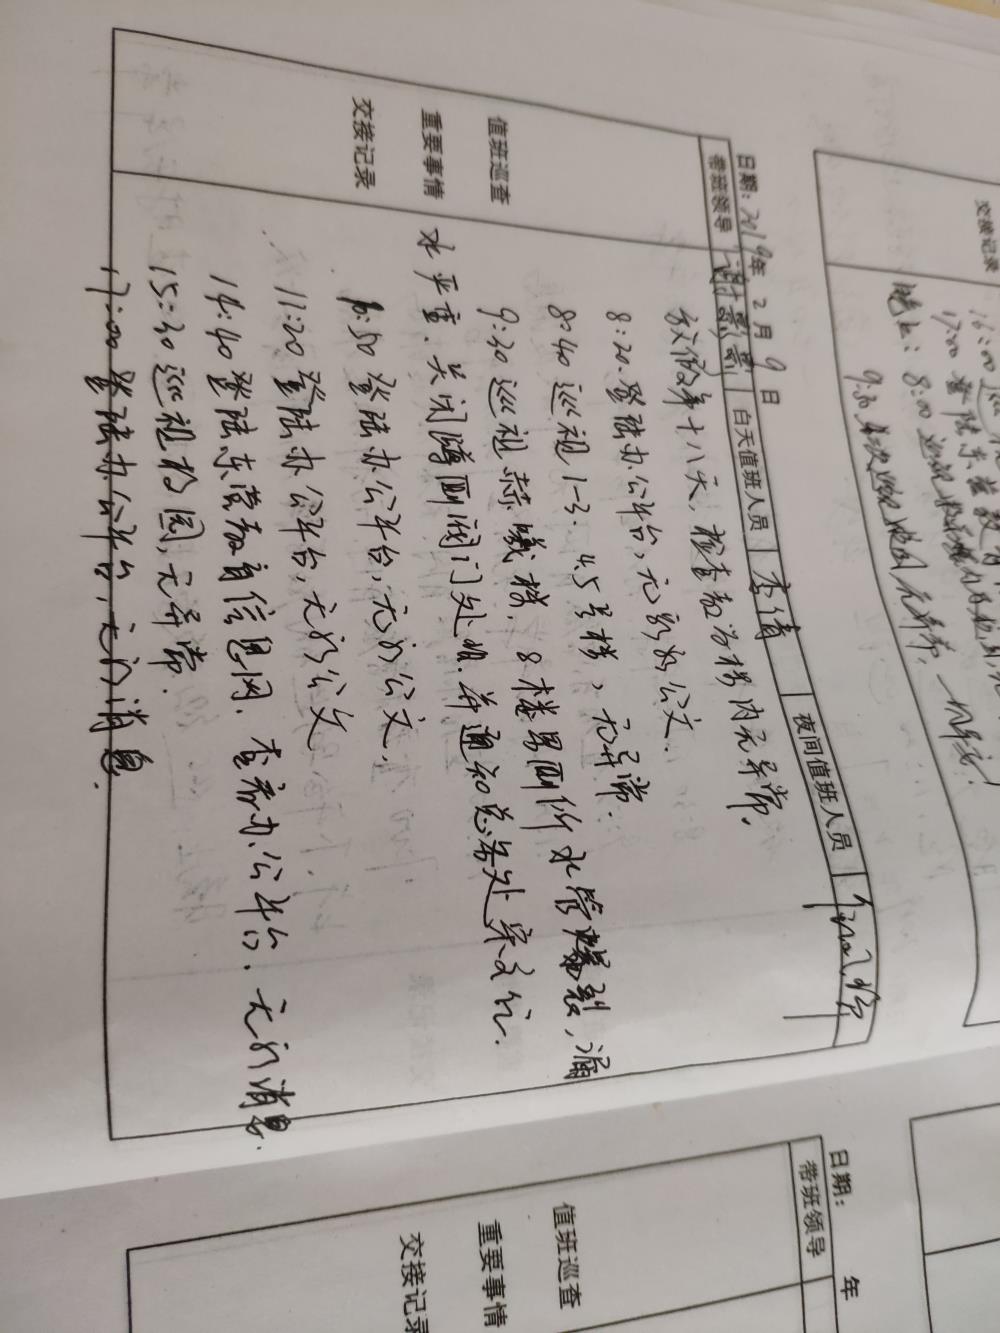 交接记录
16:00巡
17:00登陆东营教育
晚上:8:00巡视
9:30
日期:2019年2月9日
带班领导 谢 白天值班人员 李倩 夜间值班人员
值班巡查
重要事情
交接记录
放假第十八天,检查勤为楼内无异常。
8:20.登陆办公平台,无新的公文.
8:40巡视1-3.4.5号楼,无异常.
9:30巡视赫曦楼.8楼男厕所水管爆裂,漏
水严重.关闭厕阀门处理.并通知总务处宋主任.
8:50登陆办公平台,无新公文.
11:20登陆办公平台,无新公文
14:40登陆东营教育信息网.查看办公平台.无新消息.
15:30巡视校园,无异常.
17:00登陆办公平台,无新消息.
日期: 年
带班领导
值班巡查
重要事情
交接记录